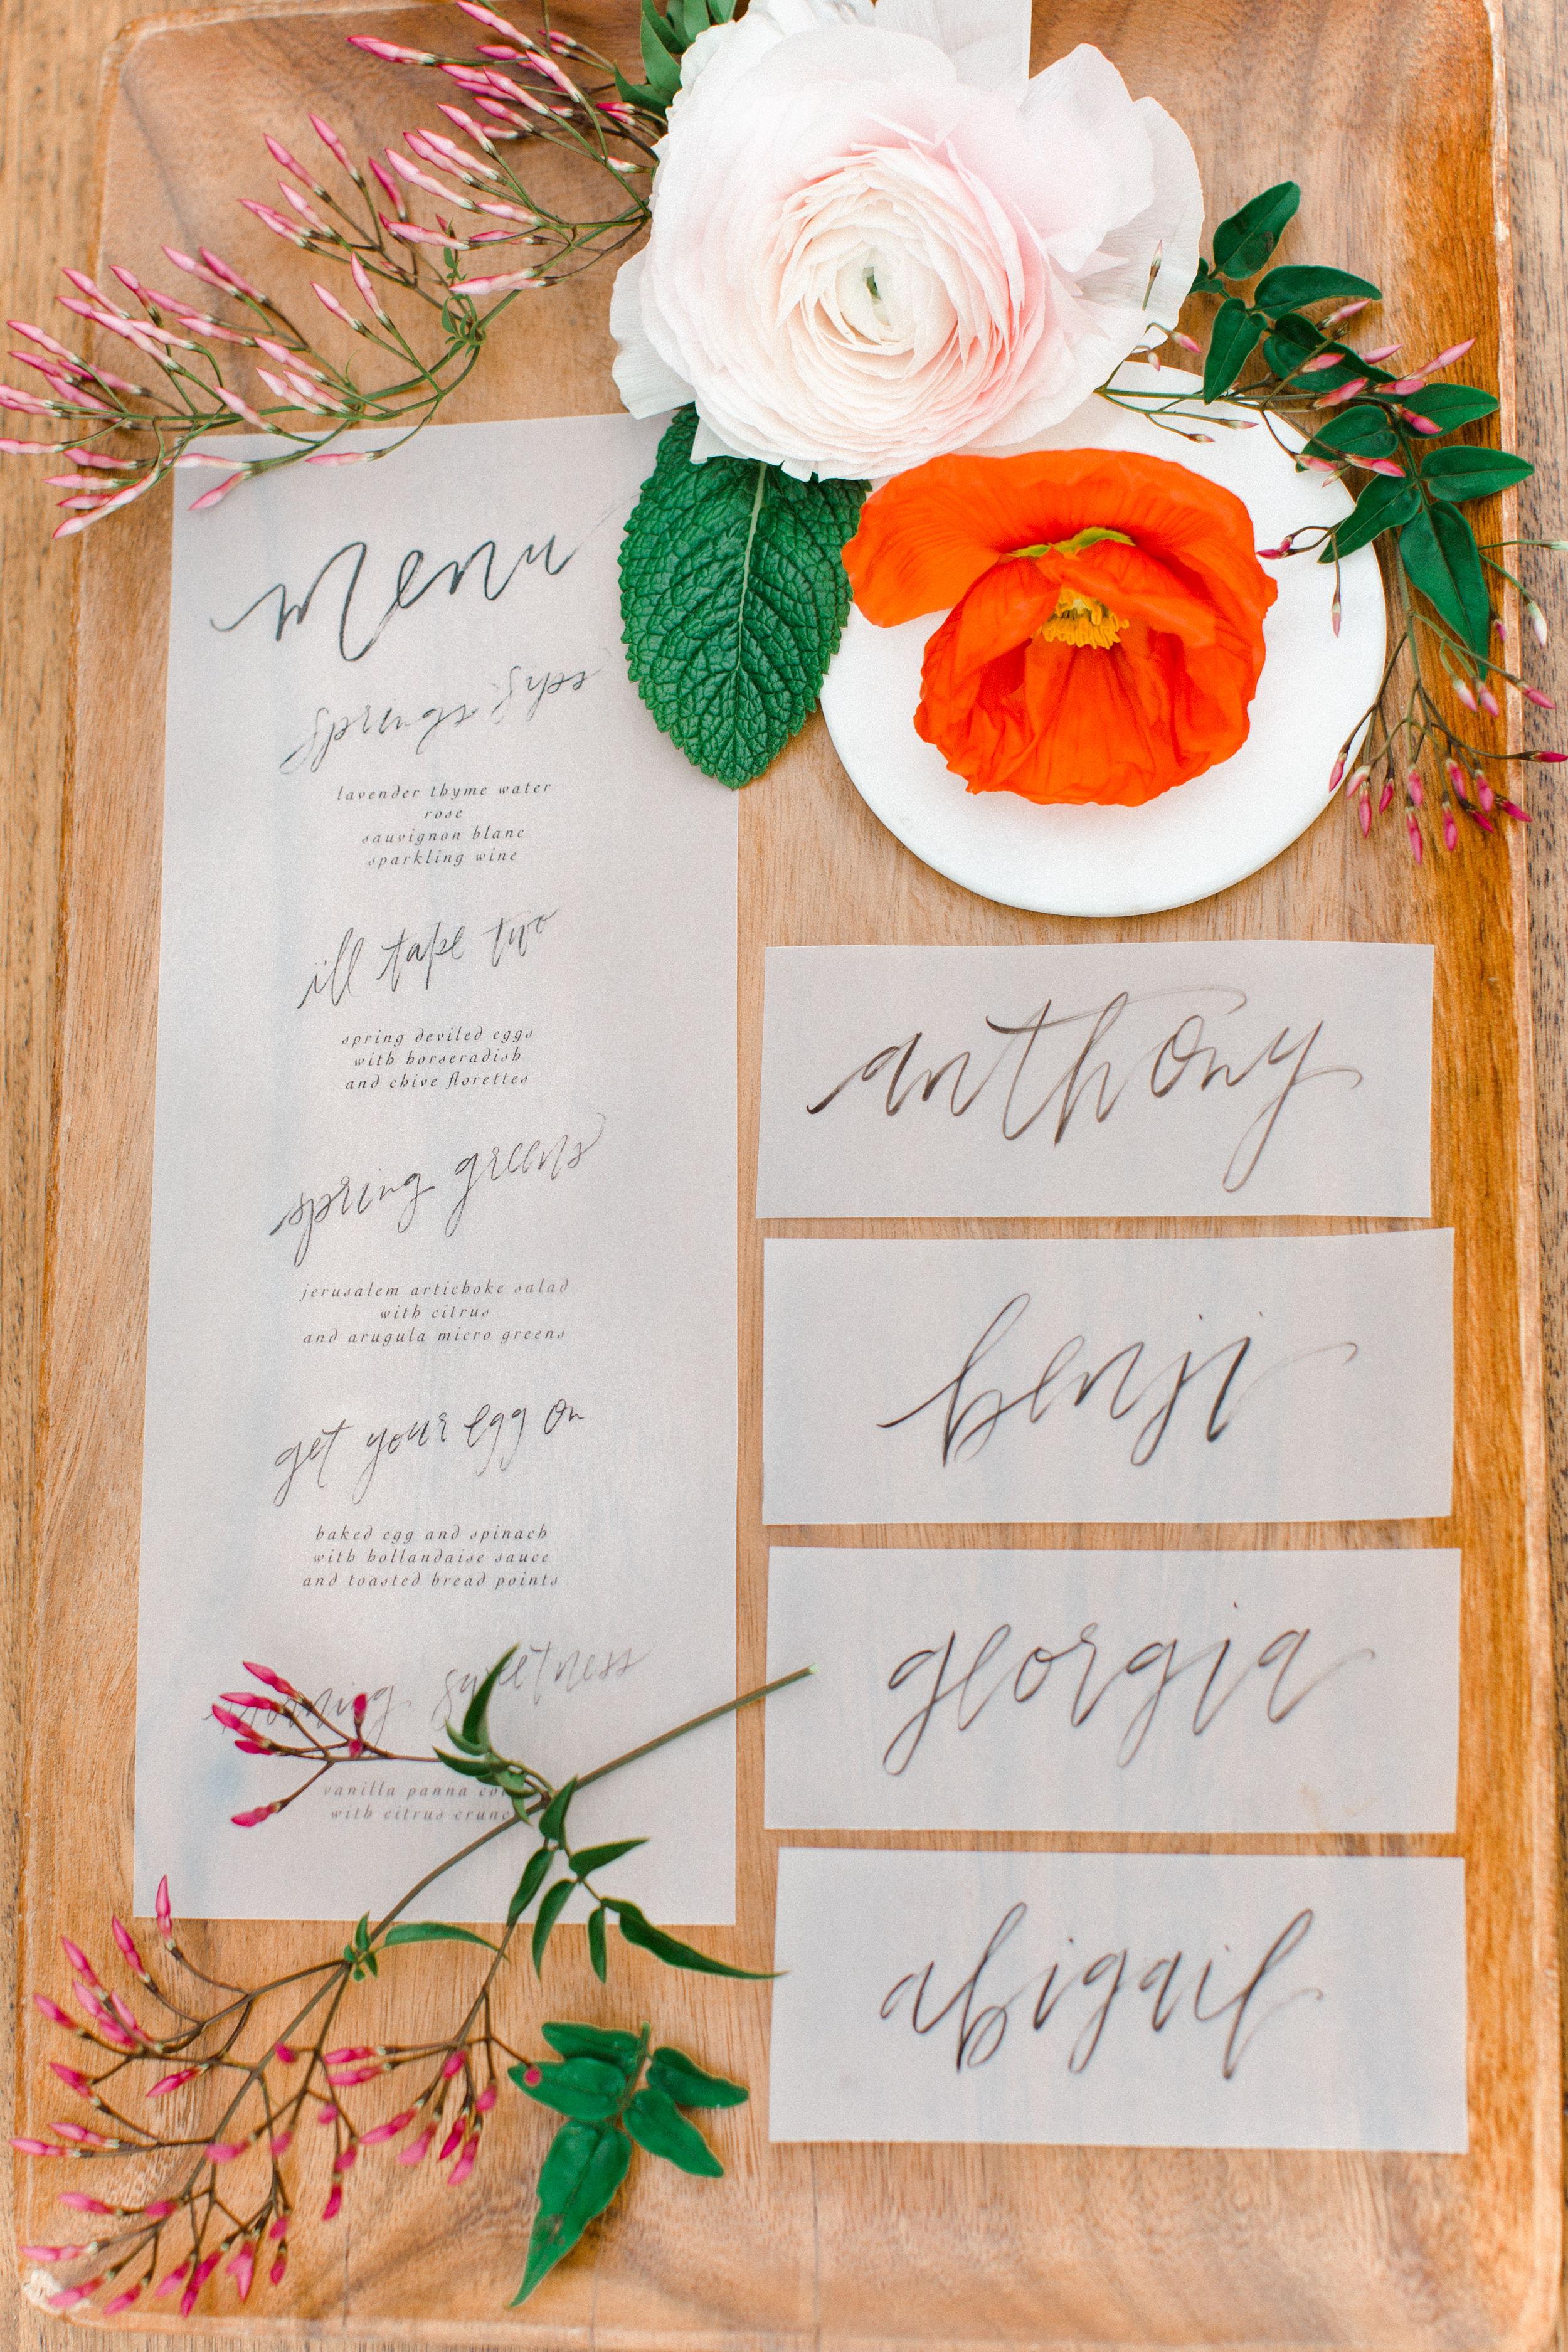 menu
springs sips
lavender thyme water
rose
sauvignon blanc
sparkling wine
ill take two
spring deviled eggs
with horseradish
and chive florettes
spring greens
jerusalem artichoke salad
with citrus
and arugula micro greens
get your egg on
baked egg and spinach
with hollandaise sauce
and toasted bread points
morning sweetness
vanilla panna
with citrus
anthony
benji
georgia
abigail